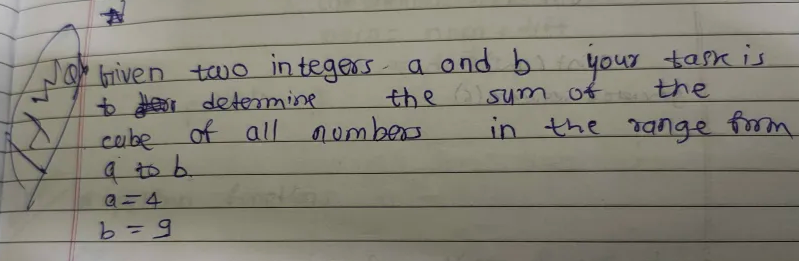 Given two integers a and b your task is
to determine the sum of the
cube of all numbers in the range from
a to b
a=4
b = 9